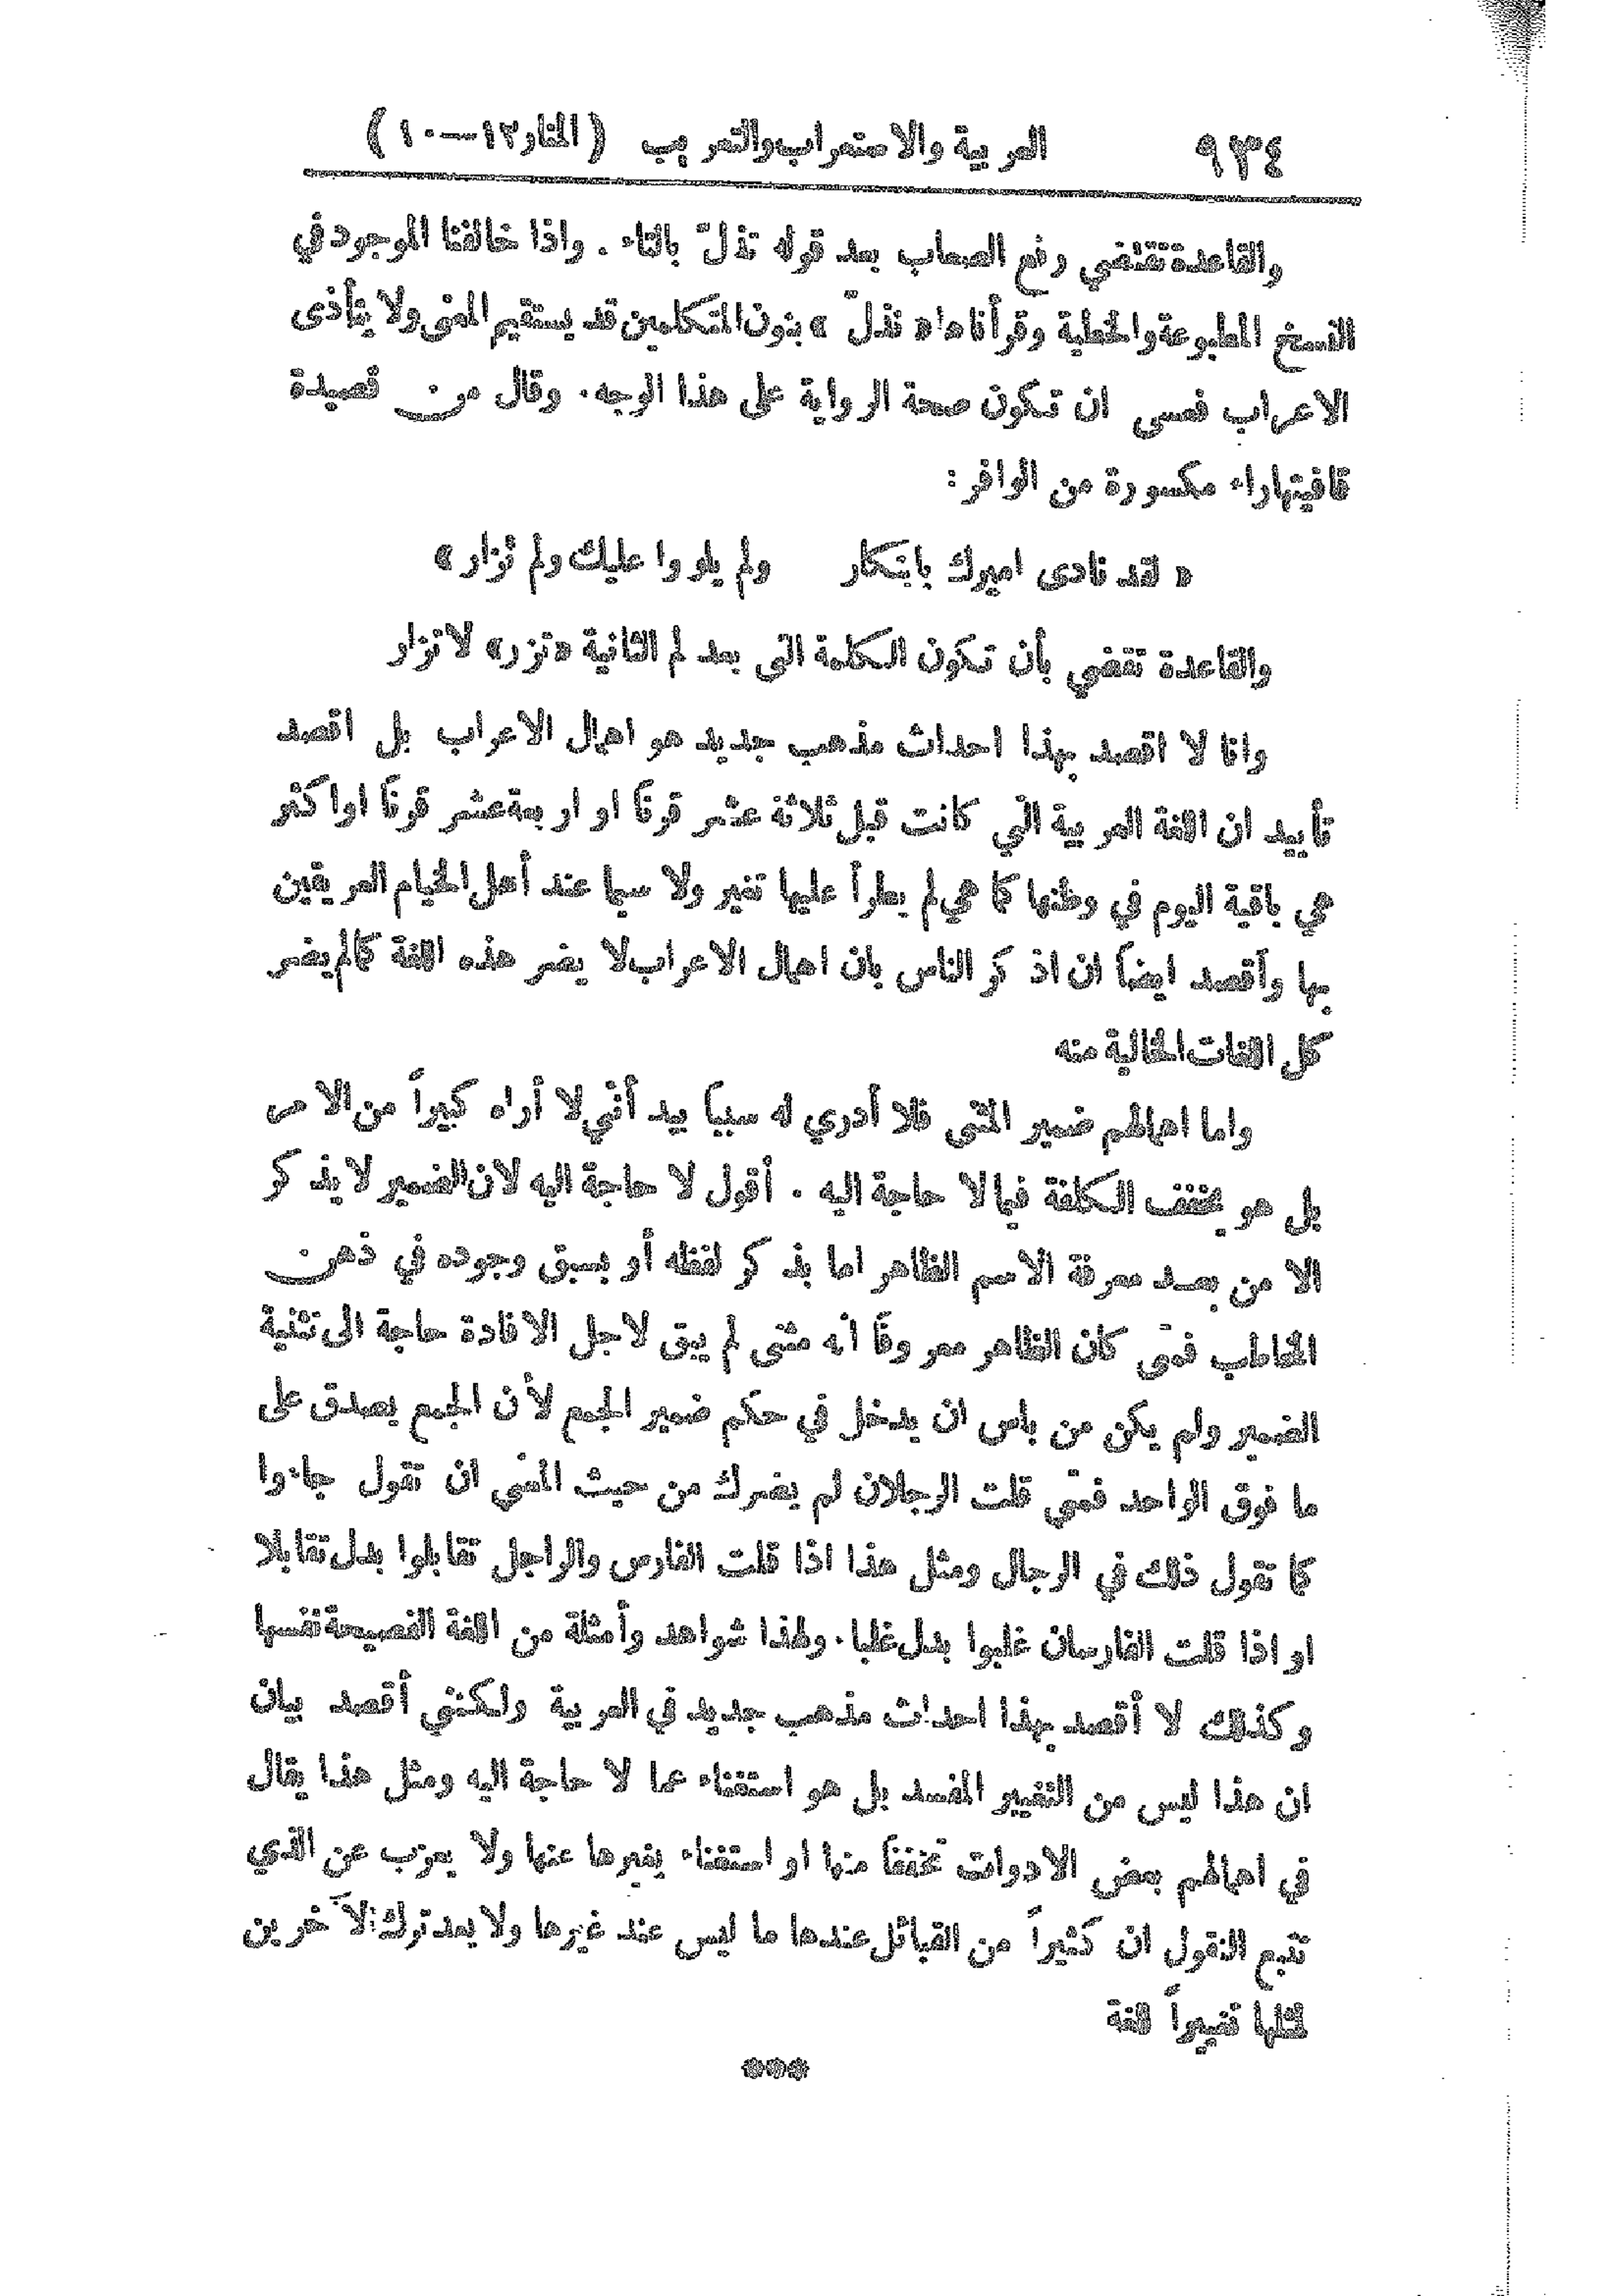 ٩٣٤ العربية والاستعراب والتعريب (المنار ١٢—١٠)
والقاعدة تقتضي رفع الصعاب بعد قوله تذلّ بالتاء . واذا خالفنا الموجود في
النسخ المطبوعة والخطية وقرأناها « نذلّ » بنون المتكلمين قد يستقيم المعنى ولا يتأذى
الاعراب فعسى ان تكون صحة الرواية على هذا الوجه . وقال من قصيدة
قافيتها راء مكسورة من الوافر :
« لقد نادى اميرك بابتكار ولم يلووا عليك ولم تُزار »
والقاعدة تقضي بأن تكون الكلمة التي بعد لم الثانية «تزر» لا تزار
وانا لا اقصد بهذا احداث مذهب جديد هو اهمال الاعراب بل اقصد
تأييد ان اللغة العربية التي كانت قبل ثلاثة عشر قرناً او اربعة عشر قرناً او اكثر
هي باقية اليوم في وطنها كما هي لم يطرأ عليها تغير ولا سيما عند أهل الخيام العريقين
بها وأقصد ايضاً ان اذكر الناس بان اهمال الاعراب لا يضر هذه اللغة كما لم يضر
كل اللغات الخالية منه
واما اهمالهم ضمير المثنى فلا أدري له سبباً بيد أنني لا أراه كبيراً من الامر
بل هو يخفف الكلفة فيما لا حاجة اليه . أقول لا حاجة اليه لان الضمير لا يذكر
الا من بعد معرفة الاسم الظاهر اما بذكر لفظه أو بسبق وجوده في ذهن
المخاطب فمتى كان الظاهر معروفاً انه مثنى لم يبق لاجل الافادة حاجة الى تثنية
الضمير ولم يكن من باس ان يدخل في حكم ضمير الجمع لأن الجمع يصدق على
ما فوق الواحد فمتى قلت الرجلان لم يضرك من حيث المعنى ان تقول جاءوا
كما تقول ذلك في الرجال ومثل هذا اذا قلت الفارس والراجل تقابلوا بدل تقابلا
او اذا قلت الفارسان غلبوا بدل غلبا . ولهذا شواهد وأمثلة من اللغة الفصيحة نفسها
وكذلك لا أقصد بهذا احداث مذهب جديد في العربية ولكنني أقصد بيان
ان هذا ليس من التغيير المفسد بل هو استغناء عما لا حاجة اليه ومثل هذا يقال
في اهمالهم بعض الادوات تخففاً منها او استغناء بغيرها عنها ولا يعزب عن الذي
تتبع النقول ان كثيراً من القبائل عندها ما ليس عند غيرها ولا يعد ترك الآخرين
لمثلها تغييراً للغة
***